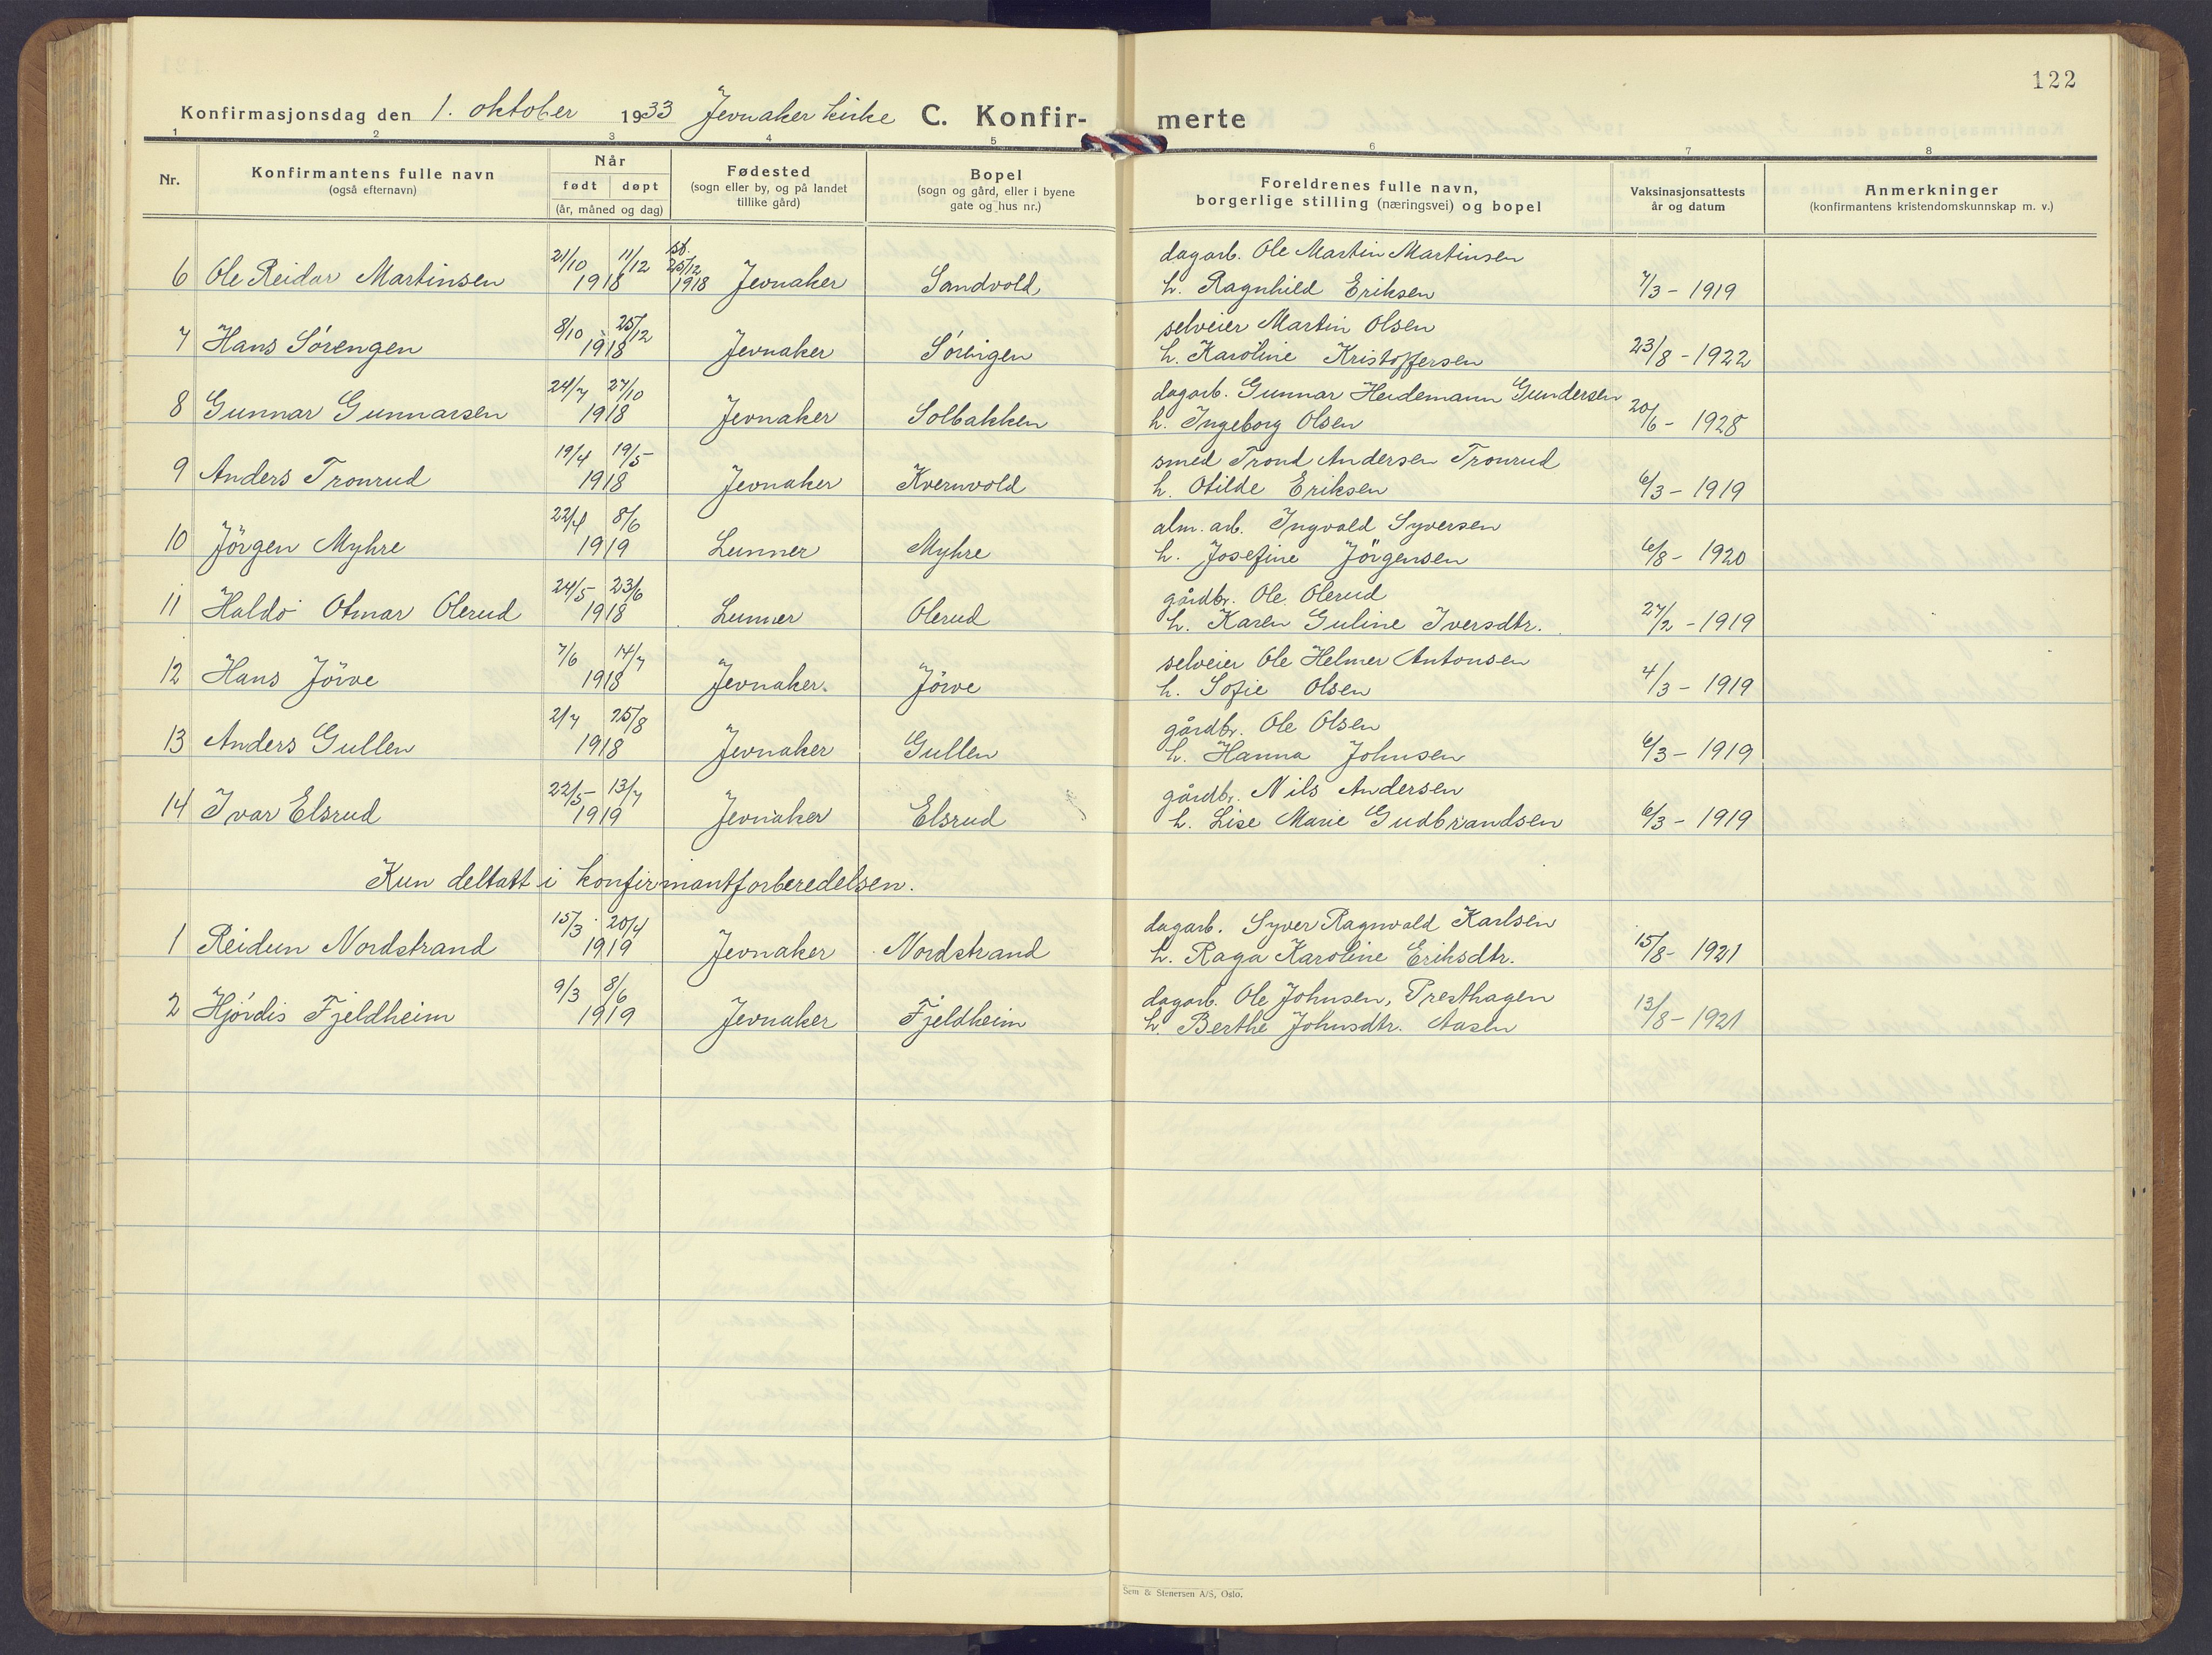 122
Konfirmasjonsdag den 1. oktober 1933 Jevnaker kirke C. Konfirmerte
1 2 3 4 5 6 7 8
Nr.
Konfirmantens fulle navn
(også efternavn)
Når
født døpt
(år, måned og dag)
Fødested
(sogn eller by, og på landet
tillike gård)
Bopel
(sogn og gård, eller i byene
gate og hus nr.)
Foreldrenes fulle navn,
borgerlige stilling (næringsvei) og bopel
Vaksinasjonsattests
år og datum
Anmerkninger
(konfirmantens kristendomskunnskap m. v.)
21/10 11/12 st. 25/12 dagarb. Ole Martin Martinsen
6 Ole Reidar Martinsen 1918 1918 Jevnaker Sandvold h. Ragnhild Eriksen 7/3 - 1919
8/10 25/12 selveier Martin Olsen
7 Hans Sørengen 1918 Jevnaker Sørengen h. Karoline Kristoffersen 23/8 - 1922
24/7 27/10 dagarb. Gunnar Heidemann Gundersen
8 Gunnar Gunnarsen 1918 Jevnaker Solbakken h. Ingeborg Olsen 20/6 - 1928
19/4 19/5 smed Trond Andersen Tronrud
9 Anders Tronrud 1918 Jevnaker Kvernvold h. Otilde Eriksen 6/3 - 1919
22/4 8/6 alm. arb. Ingvald Syversen
10 Jörgen Myhre 1919 Lunner Myhre h. Josefine Jörgensen 6/8 - 1920
24/5 23/6 gårdbr. Ole Olerud
11 Haldo Otmar Olerud 1918 Lunner Olerud h. Karen Guline Iversdtr. 27/2 - 1919
7/6 14/7 selveier Ole Helmer Antonsen
12 Hans Jörve 1918 Jevnaker. Jörve h. Sofie Olsen 4/3 - 1919
2/7 25/8 gårdbr. Ole Olsen
13 Anders Gullen 1918 Jevnaker Gullen h. Hanna Johnsen 6/3 - 1919
22/5 13/7 gårdbr. Nils Andersen
14 Ivar Elsrud 1919 Jevnaker Elsrud h. Lise Marie Gudbrandsen 6/3 - 1919
Kun deltatt i konfirmantforberedelsen.
15/3 20/4 dagarb. Syver Ragnvald Karlsen
1 Reidun Nordstrand 1919 Jevnaker Nordstrand h. Raga Karoline Eriksdtr. 15/8 - 1921
9/3 8/6 dagarb. Ole Johnsen, Presthagen
2 Hjördis Fjeldheim 1919 Jevnaker Fjeldheim h. Berthe Johnsdtr. Aasen 13/8 - 1921
Sem & Stenersen A/S, Oslo.